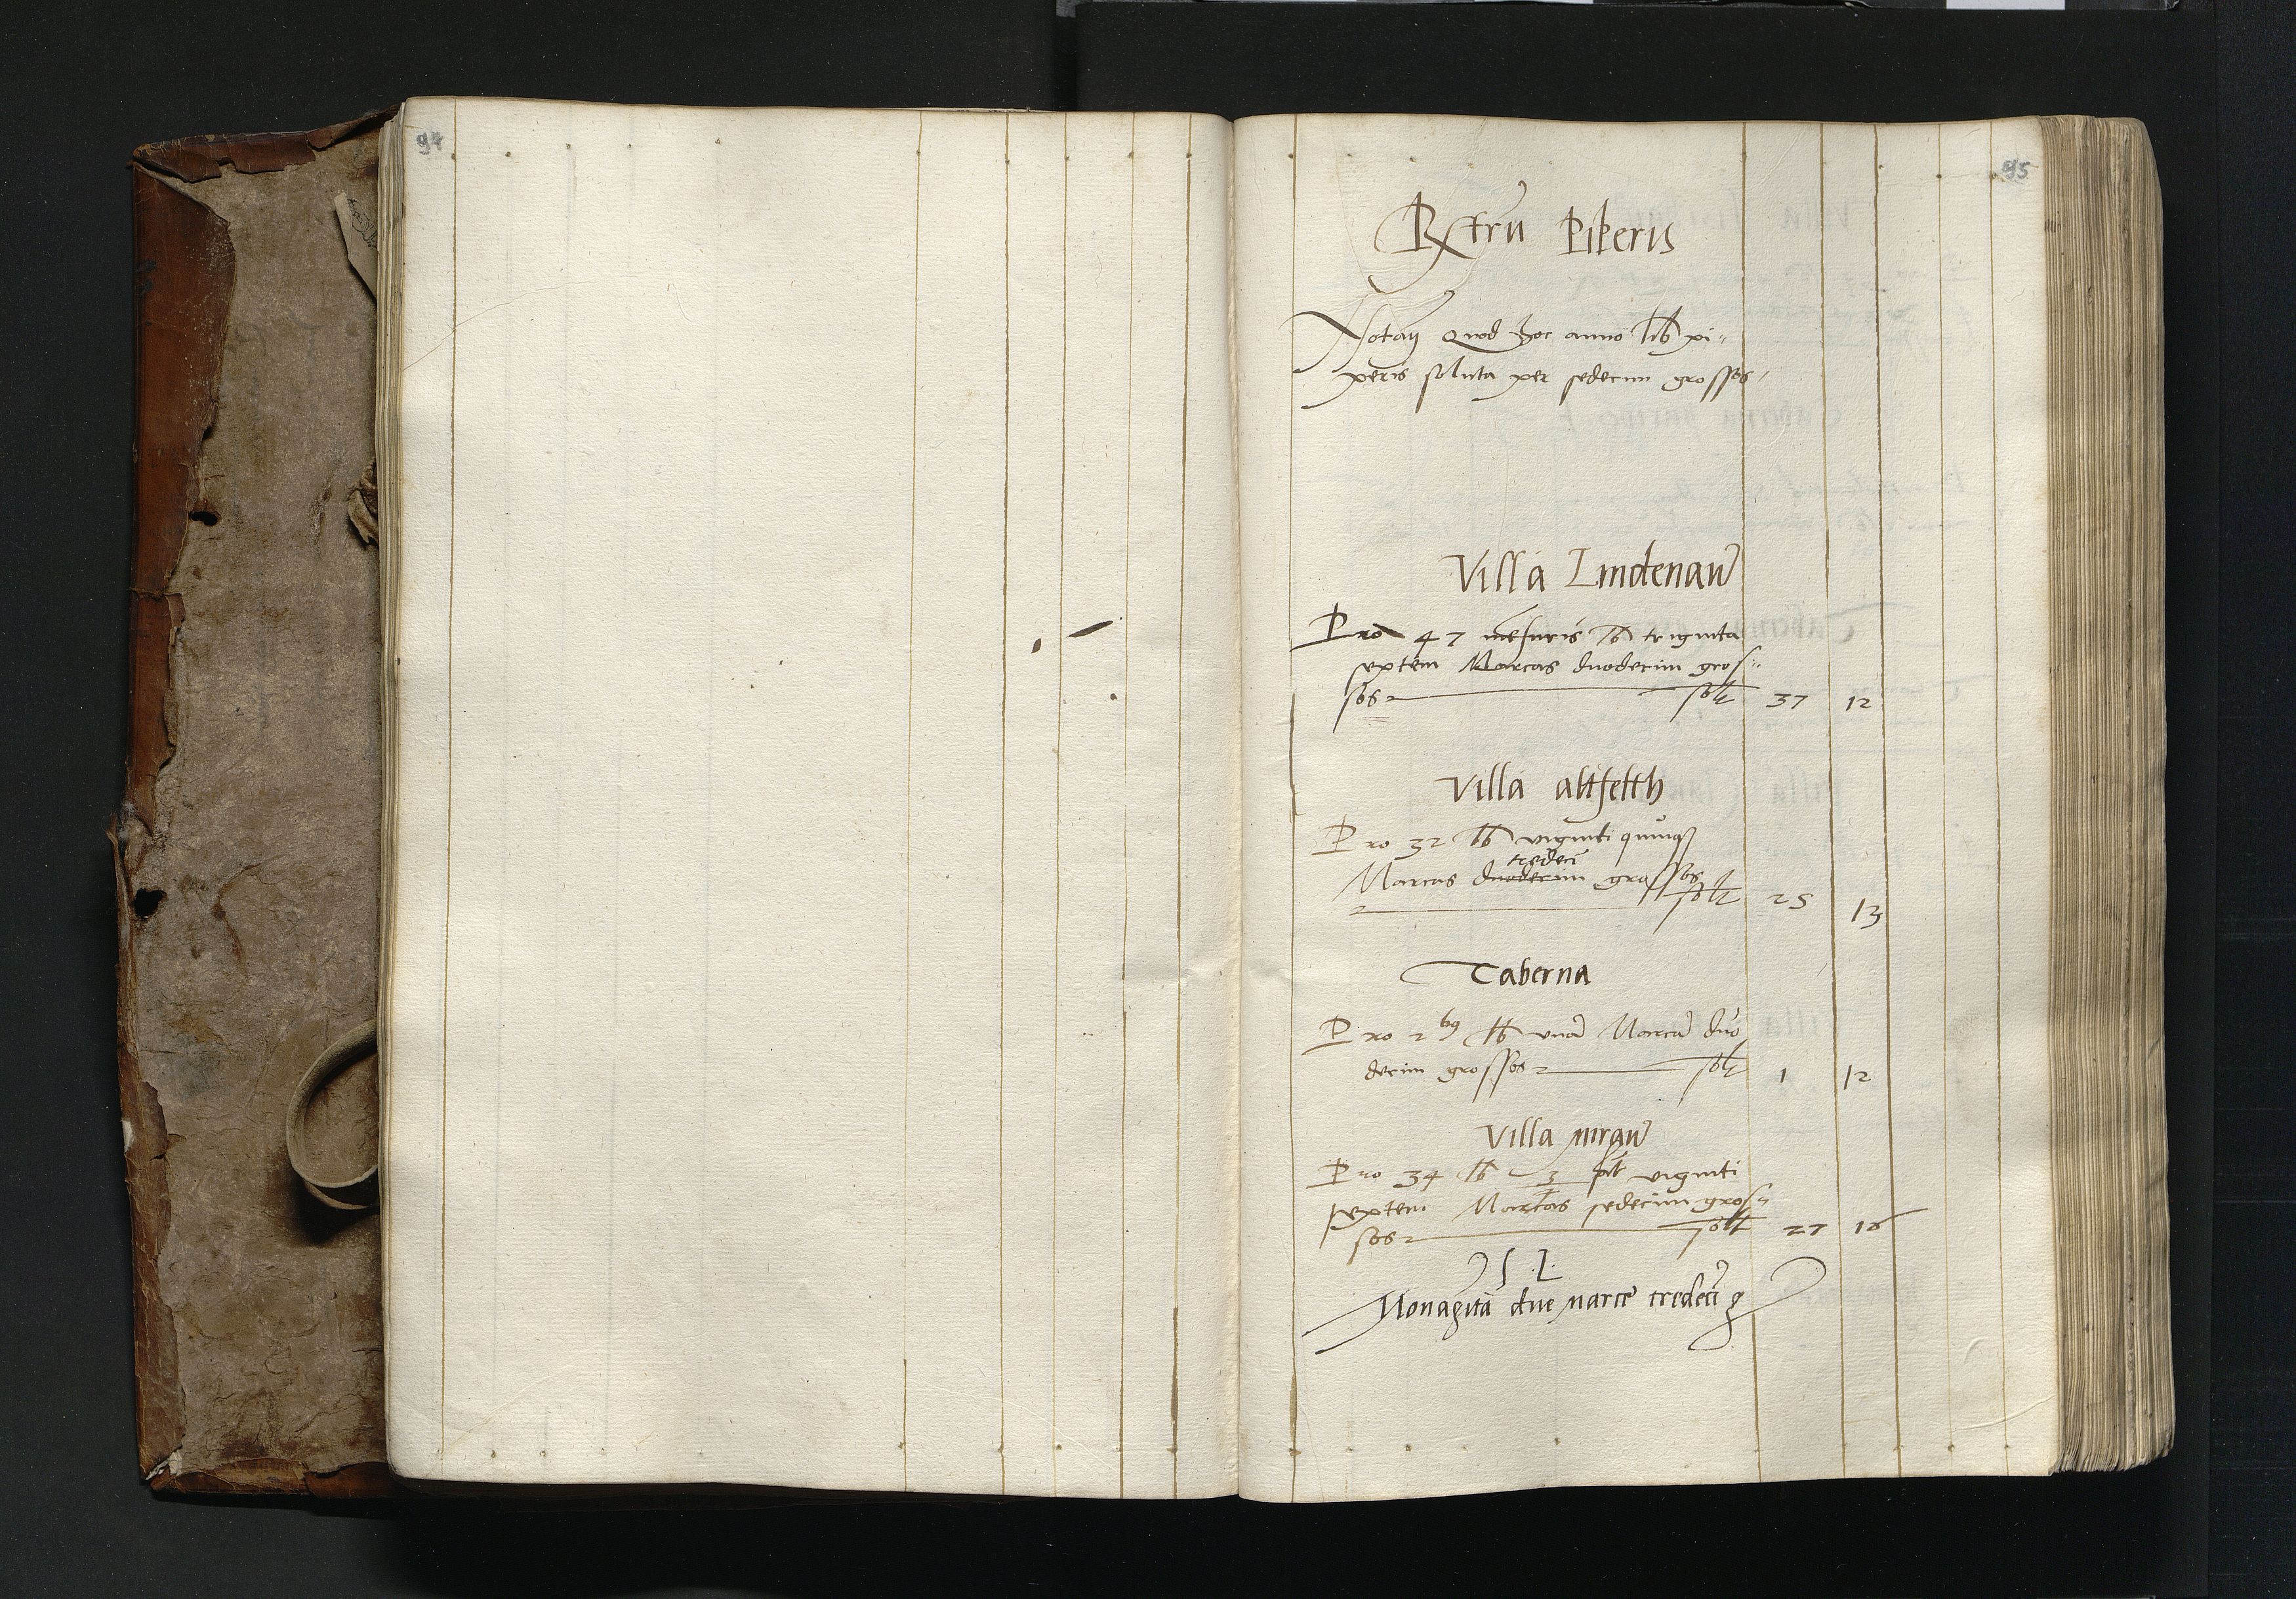 94
95
Rxtru Piperis
Notan Quod hoc anno lib pi„
peris soluta per sedecim grossos„
Villa Lindenaw
Pro 47 mesuris lb triginta
septem Marcas duodecim gros„
sos solt 37 12
Villa altfelth
Pro 32 lb viginti quinq
tredeci
Marcas duodecim grossos
solt 25 13
Taberna
Pro 2bg lb vna Marca duo
decim grossos solt 1 12
Villa
Pro 34 lb 3 viginti
septem Marcas sedecim gros„
sos solt 27 16
S L
Nonagita due marce tredeci g